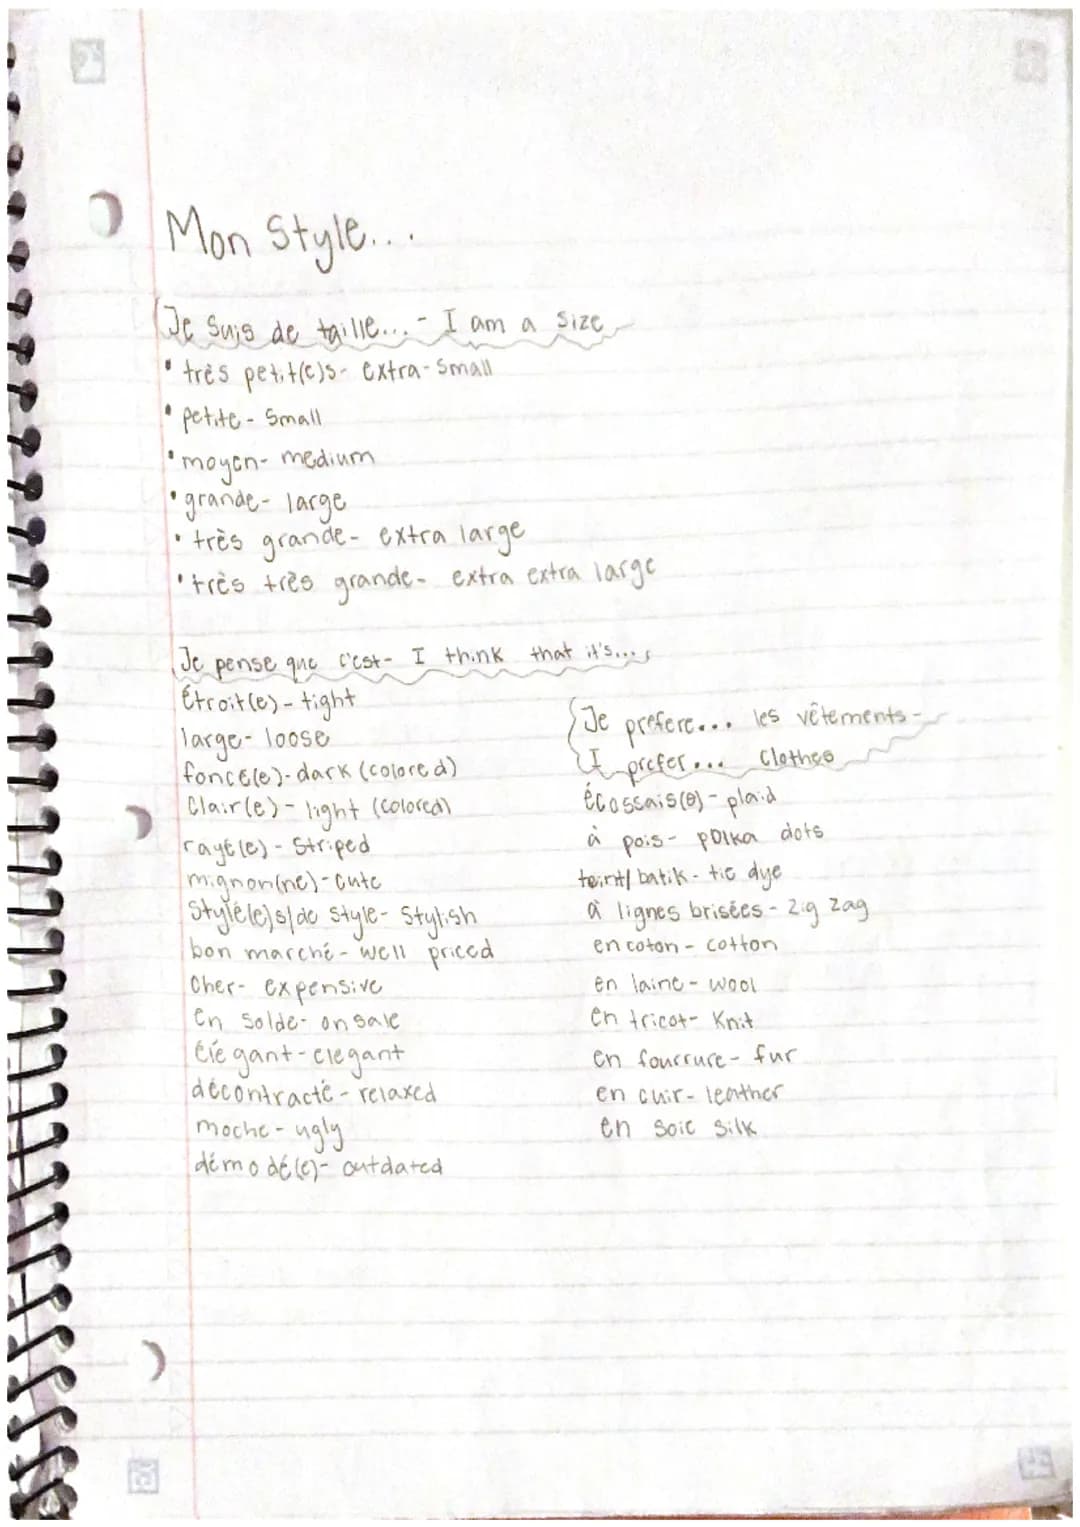 Mon Style...
Je suis de taille... - I am a size
• très petit(e)s - extra-small
• petite - small
• moyen - medium
• grande - large
• très grande - extra large
• très très grande - extra extra large
Je pense que c'est - I think that it's...
Étroit(e) - tight
large - loose
foncé(e) - dark (colored)
Clair(e) - light (colored)
rayé(e) - Striped
mignon(ne) - cute
Stylé(e)s/de style - Stylish
bon marché - well priced
Cher - expensive
en solde - on sale
élégant - elegant
décontracté - relaxed
moche - ugly
démodé(e) - outdated
Je prefere... les vêtements -
I prefer... Clothes
écossais(e) - plaid
à pois - polka dots
teint/batik - tie dye
à lignes brisées - zig zag
en coton - cotton
en laine - wool
en tricot - Knit
en fourrure - fur
en cuir - leather
en soie silk